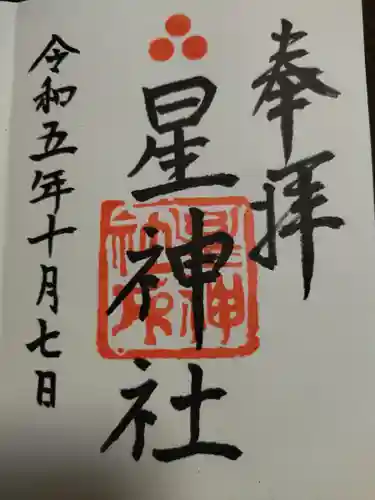 奉拝
星神社
令和五年十月七日
星神社印